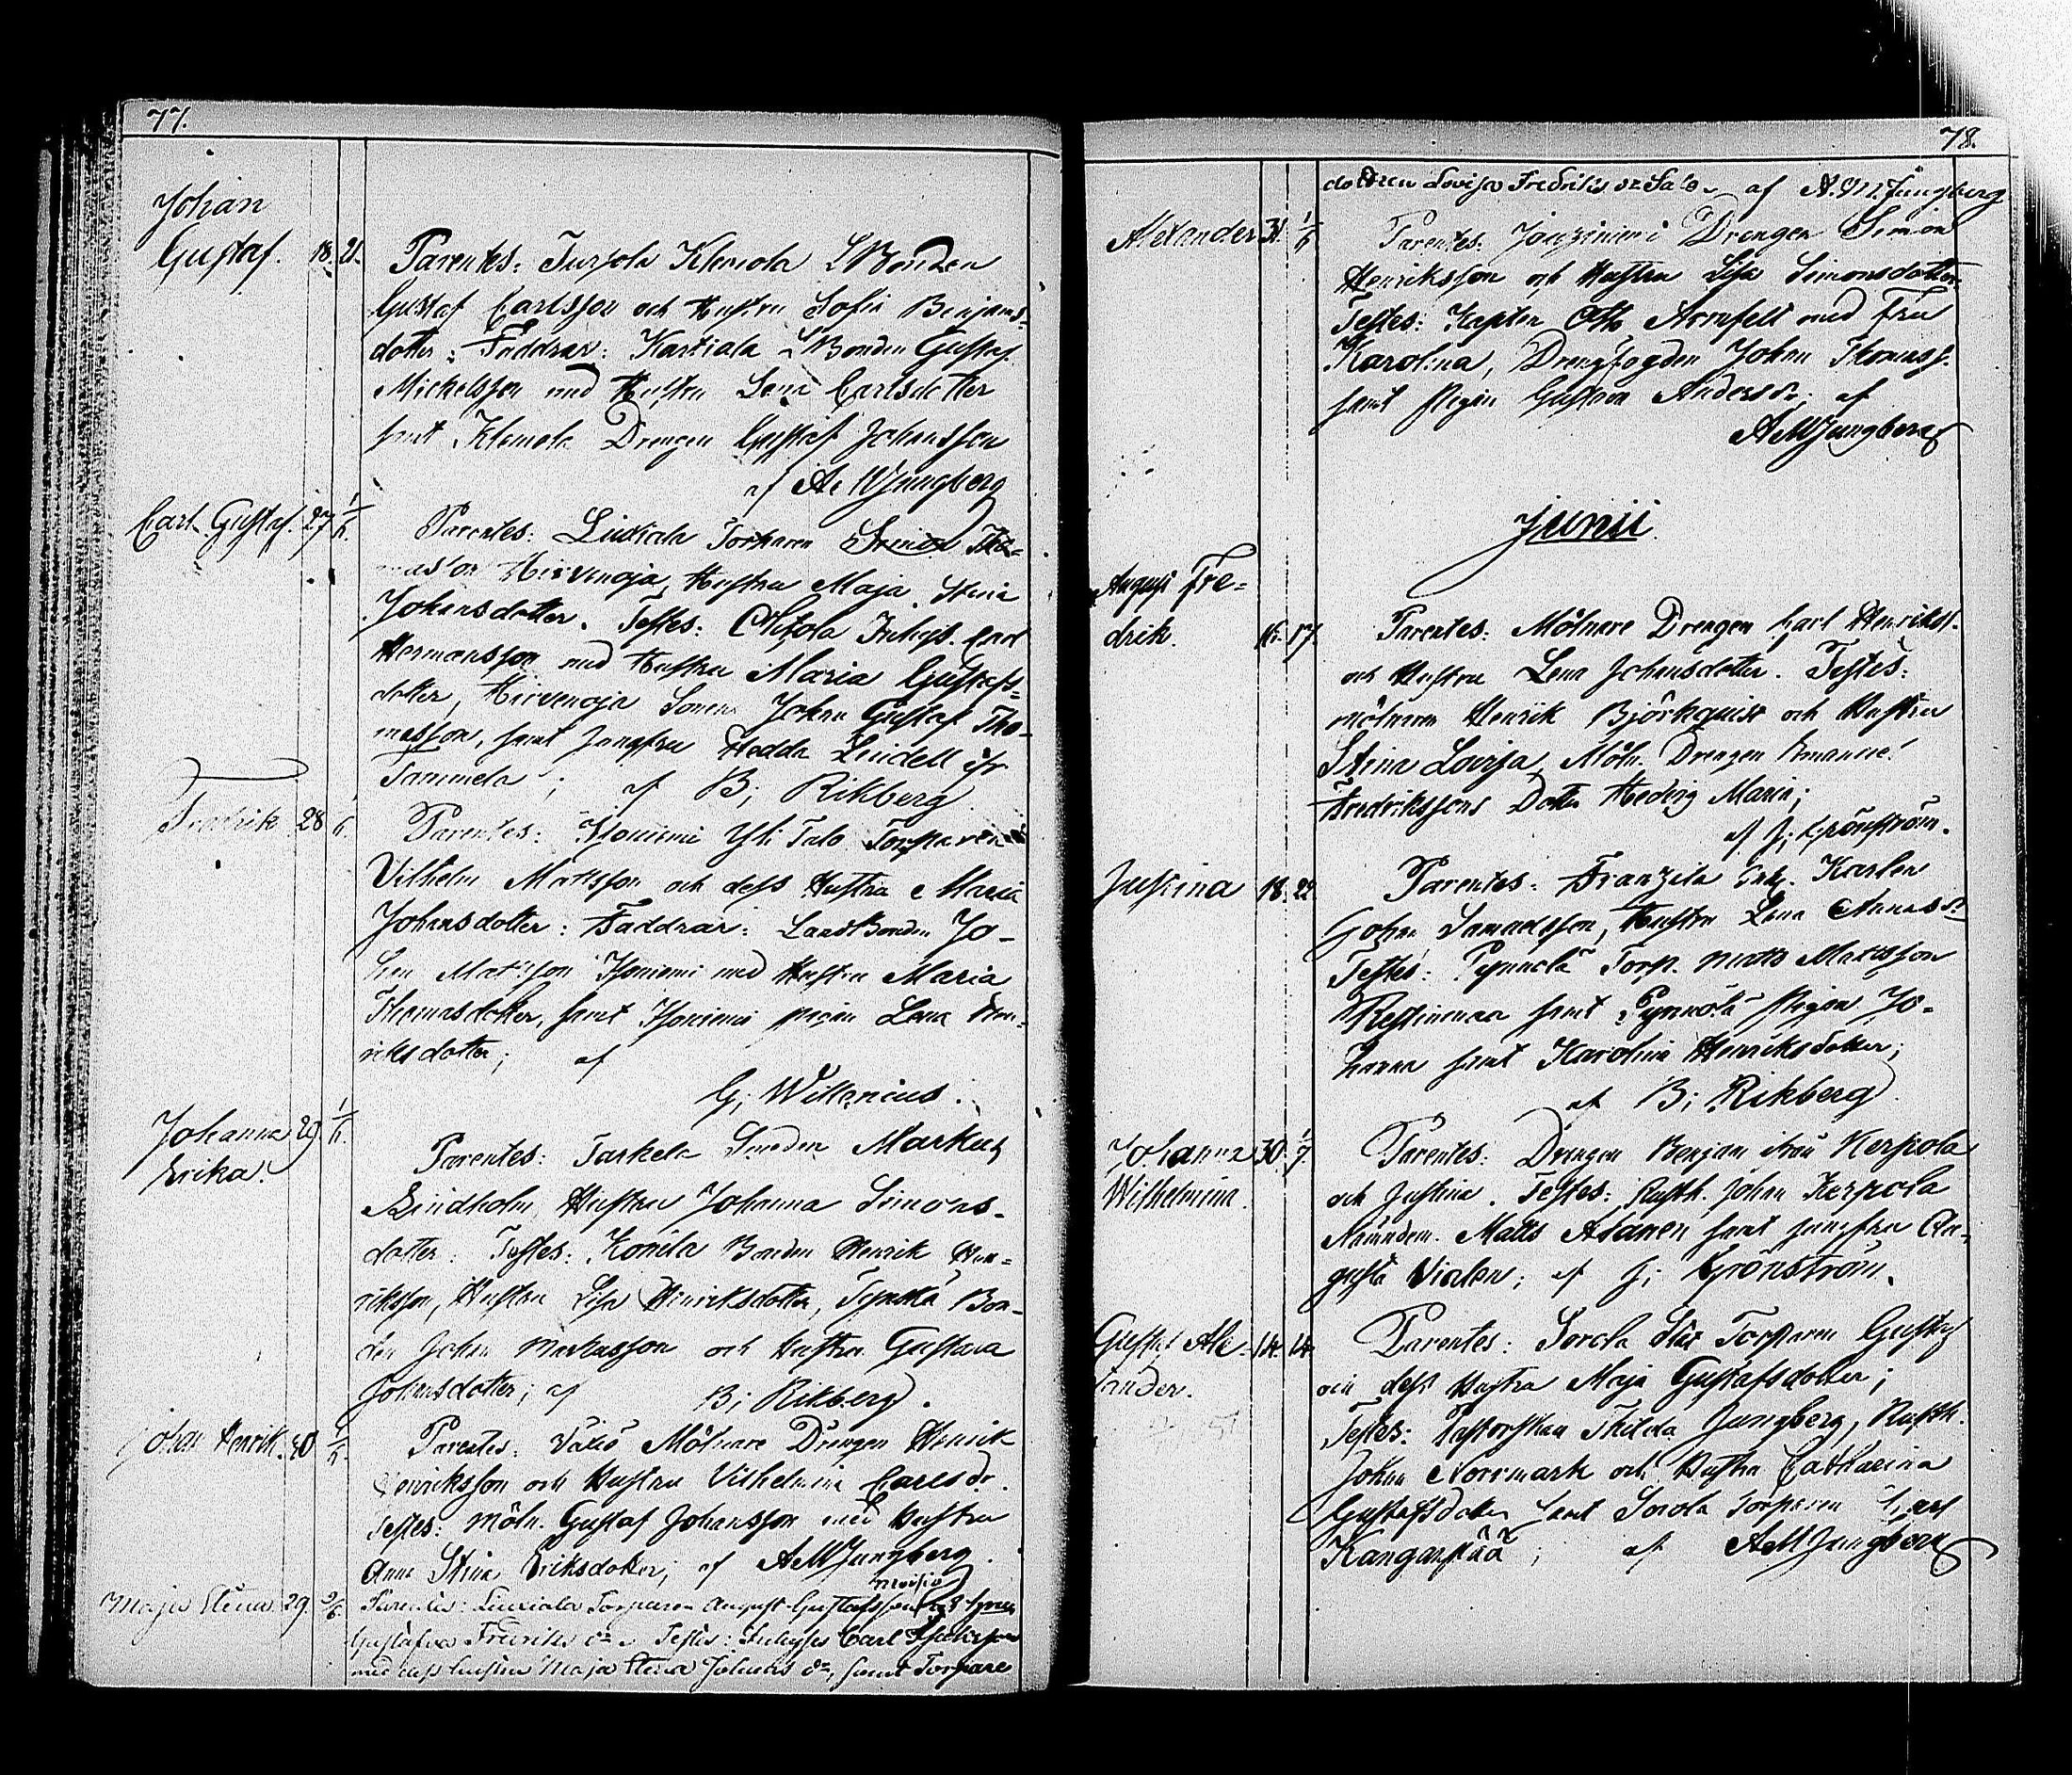 77.
Johan
Gustaf. 18. 21. Parentes: Turpola Klemola LBonden
Gustaf Carlsson och Hustru Sofia Benjams-
dotter; Faddrar: Kartiala LBonden Gustaf
Mickelsson med Hustru Lena Carlsdotter
samt Klemola Drengen Gustaf Johansson
af A. W Jungberg
Carl Gustaf. 27 1/6. Parentes: Liuxiala Torparen Tho-
masson Hirvenoja, Hustru Maja Stina
Johansdotter. Testes: Inhys. Carl
Hermansson med Hustru Maria Gustafs-
dotter, Hirvenoja Sonen Johan Gustaf Tho-
masson, samt Jungfru Hedda Lindell ifr
Tammela; af B; Rikberg
Fredrik 28 1/6. Parentes: Isoniemi Yli Talo Torparen
Vilhelm Mattsson och dess Hustru Maria
Johansdotter: Faddrar: LandBonden Jo-
han Mattsson Isoniemi med Hustru Maria
Thomasdotter, samt Isoniemi pigan Lena Hen-
riksdotter; af
G; Willenius.
Johanna 29. 1/6.
Erika. Parentes: Tarkela Smeden Markus
Lindholm, Hustru Johanna Simons-
dotter. Testes: Konila Bonden Henrik Hen-
riksson, Hustru Lisa Henriksdotter, Bon-
den Johan Markusson och Hustru Gustava
Johansdotter; af B; Rikberg.
Johan Henrik. 30 1/6. Parentes: Mölnare Drengen Henrik
Henriksson och Hustru Vilhelmina Carlsdr.
Testes: Möln. Gustaf Johansson med Hustru
Anna Stina Eriksdotter; af A W Jungberg.
Maja Stina. 29. 2/6. Parentes: Liuxiala Torparen August Gustafsson
Gustafva Fredriks dr. Testes: Inhyses Carl
med dess hustru Maja Stina Johans dr, samt Torpare
78.
dottren Lovisa Fredriks dr Salo. af A. W. Jungberg
Alexander 31. 1/6 Parentes: Drengen Simon
Henriksson och Hustru Lisa Simonsdotter
Testes: Kapten Otto Armfelt med Fru
Karolina, Drengfogden Johan Thomass.
samt pigan Gustava Andersdr; af
A W Jungberg
Junii.
August Fre-
drik. 16. 17. Parentes: Mölnare Drengen Carl Henrikss.
och Hustru Lena Johansdotter. Testes:
mölnaren Henrik Björkquist och Hustru
Stina Lovisa, Möln. Drengen Emanuel
Fredrikssons Dotter Hedvig Maria;
af J; Grönström.
Justina 18. 22. Parentes: Franzila Inh. Karlen
Johan Samuelsson, Hustru Lena
Testes: Torp. Matts Mattsson
samt pigan Jo-
hanna samt Karolina Henriksdotter;
af B; Rikberg
Johanna 30. 1/7.
Wilhelmina. Parentes: Drengen Benjam ifrån Kerpola
och Justina. Testes: Rusth. Johan Kerpola
Nämndem. Matts Alanen samt jungfru Au-
gusta Virlen; af J; Grönström.
Gustaf Ale- 14. 14.
xander. Parentes: Sorola Torparen Gustaf
och dess Hustru Maja Gustafsdotter;
Testes: Pastorskan Thilda Jungberg, Rusth.
Johan Norrmark och Hustru Catharina
Gustafsdotter samt Sorola Torparen Carl
Kangaspää; af A W Jungberg